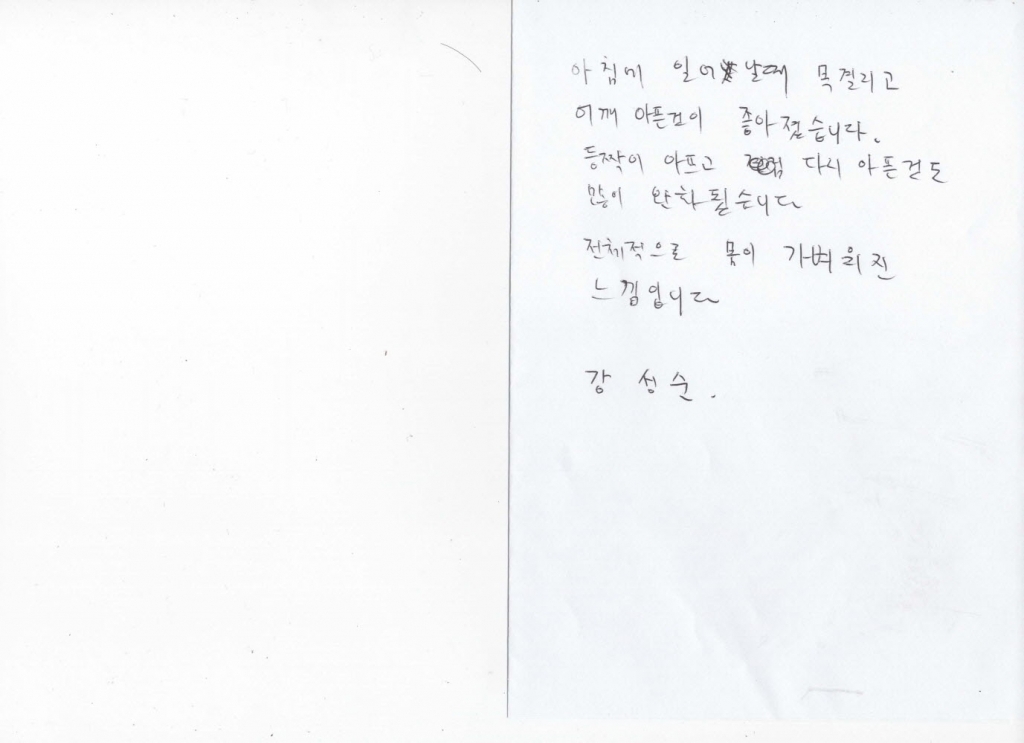 아침에 일어날때 목결리고
어깨 아픈건이 좋아졌습니다.
등짝이 아프고 다시 아픈건도
많이 완화됬습니다
전체적으로 몸이 가벼워진
느낌입니다
강성순.